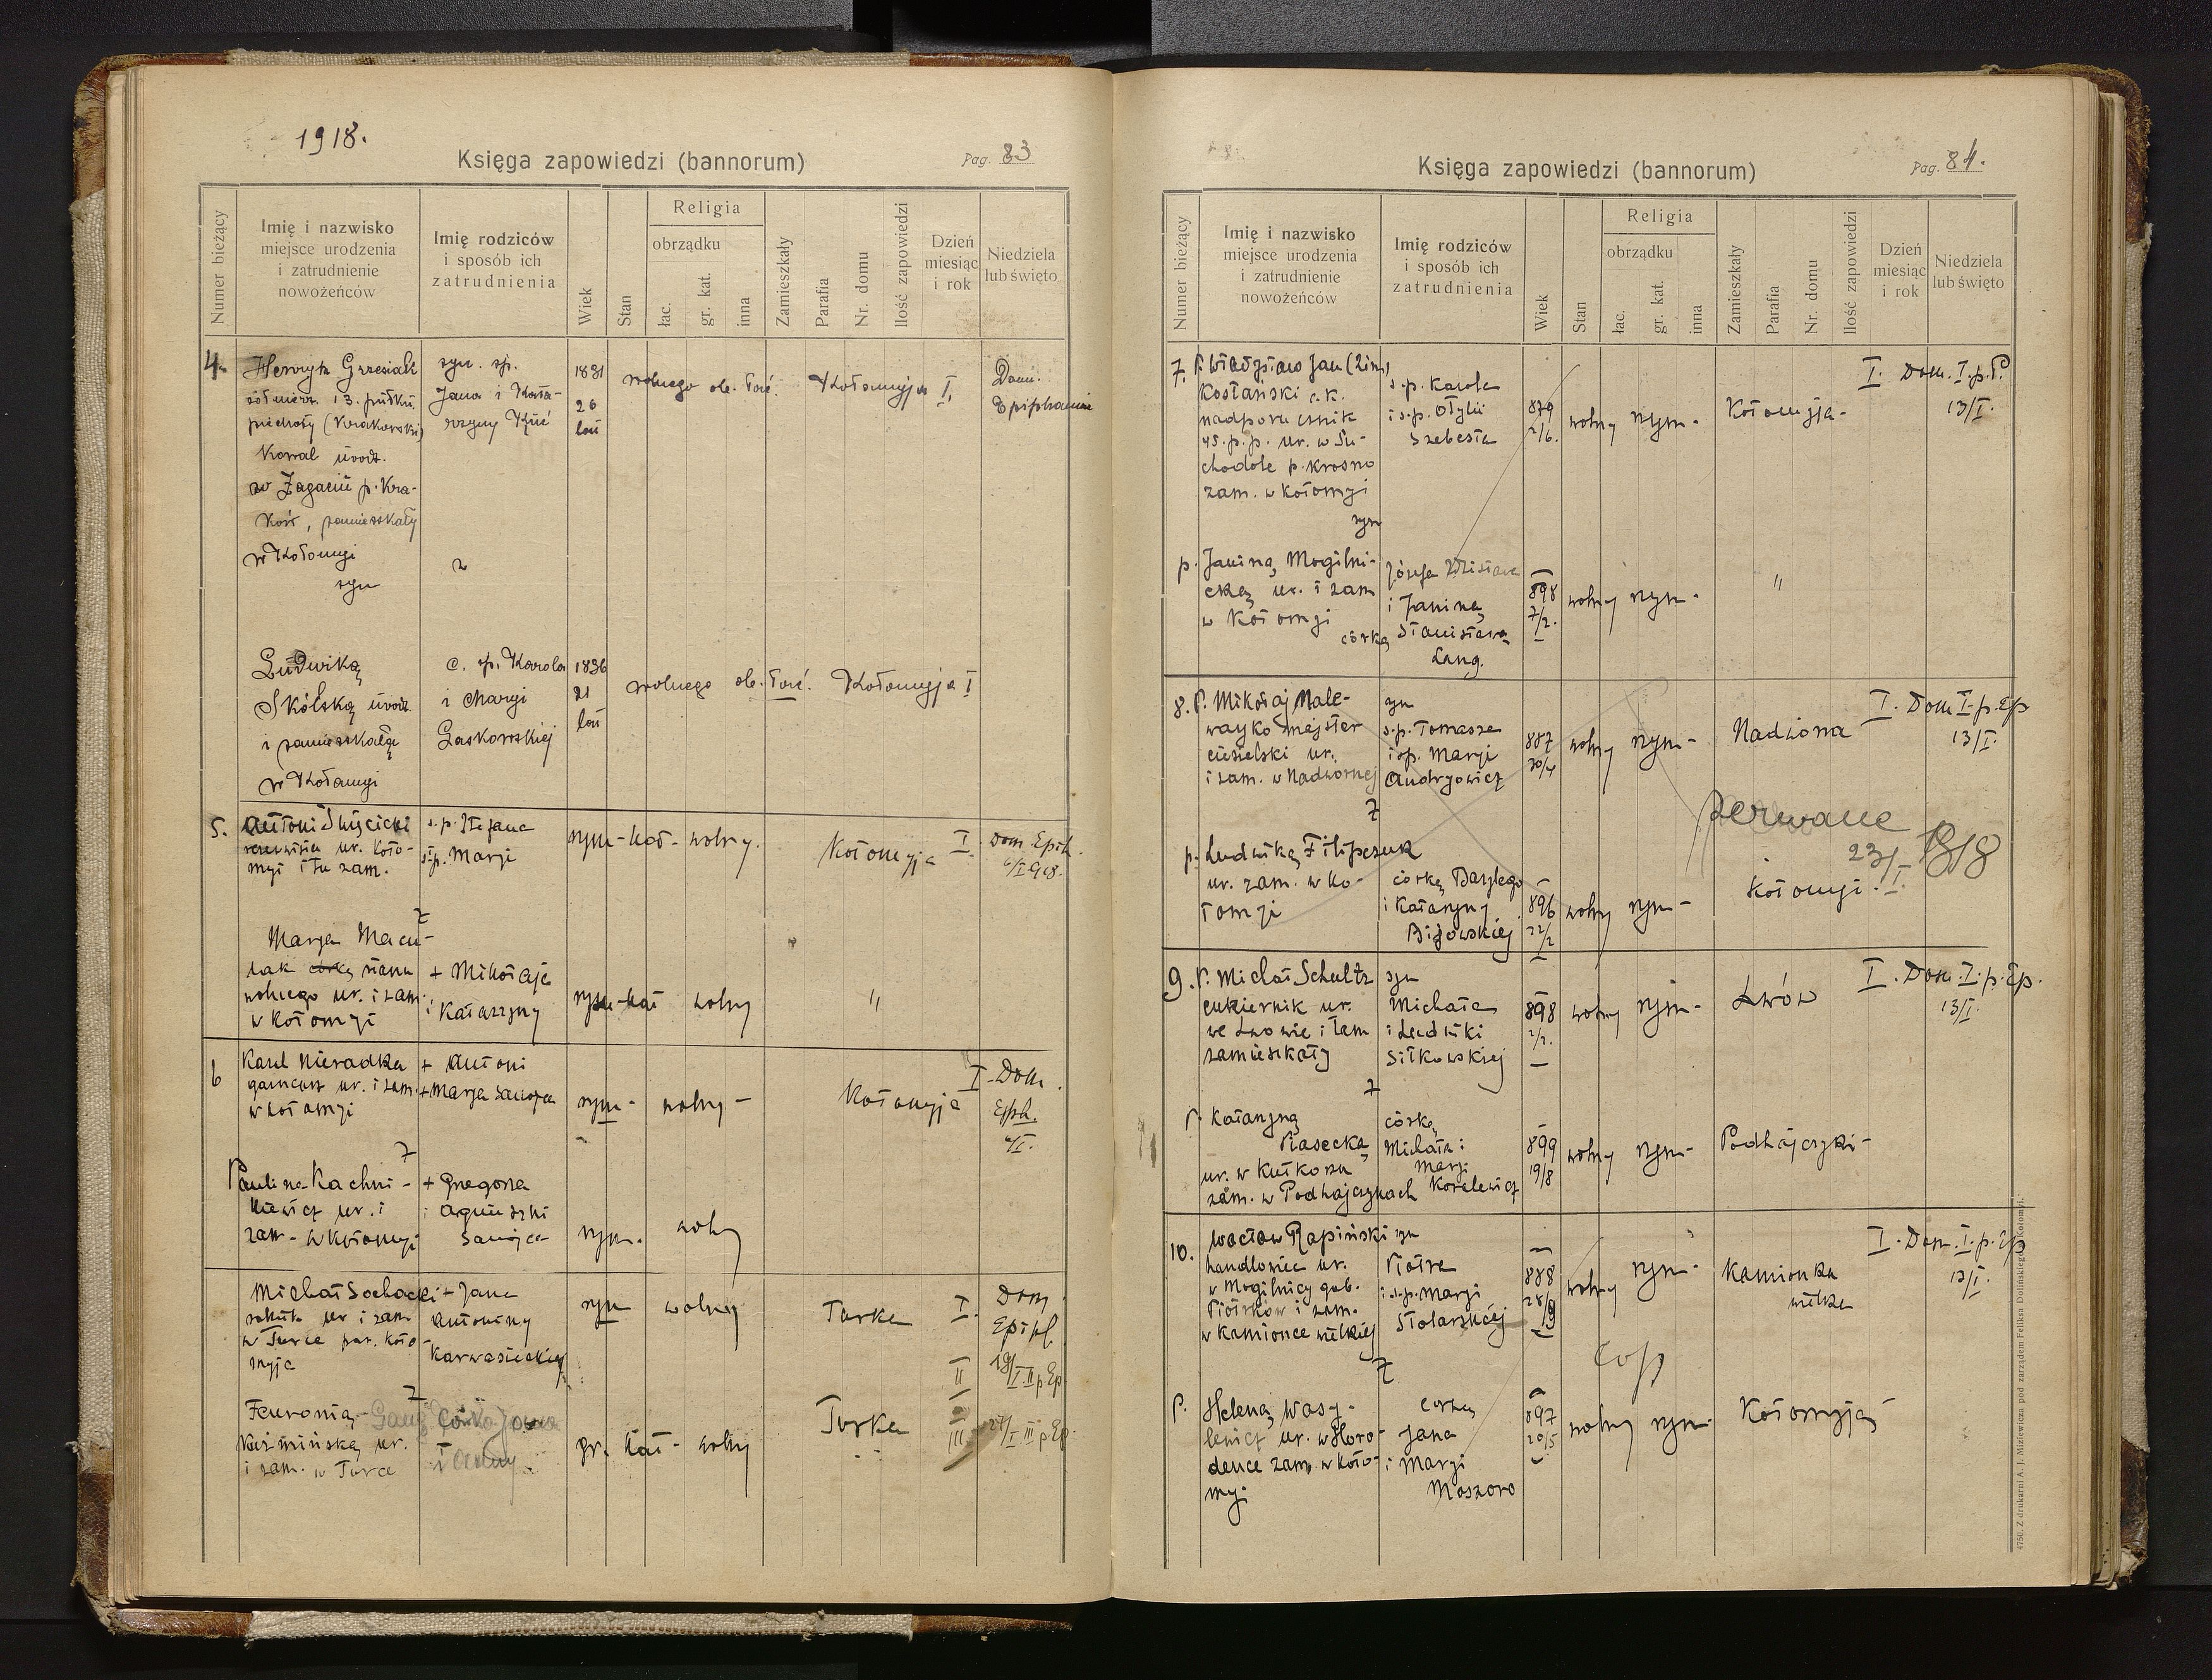 1918.
Księga zapowiedzi (bannorum)
Pag. 83
Numer bieżący
Imię i nazwisko
miejsce urodzenia
i zatrudnienie
nowożeńców
Imię rodziców
i sposób ich
zatrudnienia
Wiek
Stan
Religia
obrządku
łac.
gr. kat.
inna
Zamieszkały
Parafia
Nr. domu
Ilość zapowiedzi
Dzień
miesiąc
i rok
Niedziela
lub święto
4.
Henryk Grzesiak
żołnierz 13. pułku
piechoty (Krakowski)
Kowal urodz.
w Zagaciu p. Kra-
ków, zamieszkały
w Kołomyi
syn
syn. sp.
Jana i Kata-
rzyny Kuć
z
1891
26
lat
wolnego ob. łać.
Kołomyja I.
Dom.
Epiphaniae
Ludwiką
Skólską urodz.
i zamieszkałą
w Kołomyi
c. sp. Karola
i Maryi
Gaskowskiej
1896
21
lat
wolnego ob. łać.
Kołomyja I
5.
Antoni
ur. Koło-
myi i tu zam.
s.p. Stefana
i s.p. Marji
rzym-kat- wolny.
Kołomyja
I.
Dom Epih.
6/I 918.
z
Marja Macu-
lak córką stanu
wolnego ur. i zam
w Kołomyi
+ Mikołaja
i Katarzyny
rzym-kat wolny
"
6
Karol Nieradka
garncarz ur. i zam.
w Kołomyi
+ Antoni
+ Marja Sanojca
rzym- wolny-
Kołomyja
I. Dom.
Eph.
6/I.
z
Paulina Kachni-
kiewicz ur. i
zam. w Kołomyi
+ Gregorza
i Agnieszki
Sanojca
rzym. wolny
Michał Sochacki
rolnik ur i zam
w Turce par. Koło
myja
+ Jana
Antoniny
Karwasieckiej
rzym wolny
Turka
I.
Dom.
Epiph.
II
19/I II p. Ep
z
Feuronią
Kuźmińską ur.
i zam. w Turce
córka Jana
i Anny.
gr. kat- wolny
Turka
III
27/I III p Ep.
Księga zapowiedzi (bannorum)
Pag. 84.
Numer bieżący
Imię i nazwisko
miejsce urodzenia
i zatrudnienie
nowożeńców
Imię rodziców
i sposób ich
zatrudnienia
Wiek
Stan
Religia
obrządku
łac.
gr. kat.
inna
Zamieszkały
Parafia
Nr. domu
Ilość zapowiedzi
Dzień
miesiąc
i rok
Niedziela
lub święto
7.
P. Władysław Jan (2im)
Kostański c.k.
nadporucznik
45. p.p. ur. w Su-
chodole p. Krosno
zam. w Kołomyi
syn
s.p. Karola
i s.p. Otylii
Szebesta
879
2/6.
wolny rzym-
Kołomyja-
I. Dom. I. p. P.
13/I.
p. Janiną Mogilni-
cką ur. i zam
w Kołomyi
córką
Józefa
i Janiną
Stanisława
Lang.
898
7/2.
wolny rzym-
"
8.
P. Mikołaj Male-
wayko majster
ciesielski ur.
i zam. w Nadwornej
syn
s.p. Tomasza
i sp. Marji
Andryowicz
887
30/4
wolny rzym-
Nadwórna
I. Dom I. p. Ep
13/I.
zerwane
23/I 1918
z
p. Ludwiką Filipczuk
ur. zam. w Ko-
łomyi
córką Bazylego
i Katarzyny
Bijowskiej
896
22/2
wolny rzym-
Kołomyi.
9.
P. Michał Schultz
cukiernik ur.
we Lwowie i tam
zamieszkały
syn
Michała
i Ludwiki
Sitkowskiej
898
2/2.
wolny rzym-
Lwów
I. Dom. I. p. Ep.
13/I.
z
P. Katarzyną
Piasecką
ur. w Kutkorzu
zam. w Podhajczykach
córką
Michała i
Marji
Korelewicz
899
19/8
wolny rzym-
Podhajczyki-
10.
Wacław Rapiński
handlowiec ur.
w Mogilnicy gub.
Piotrków i zam.
w Kamionce wielkiej
syn
Piotra
i s.p. Marji
Stolarskiej
888
28/9
wolny rzym-
Kamionka
wielka
I. Dom. I. p. Ep
13/I.
z
P. Heleną Wasy-
lenicz ur. w Horo-
dence zam. w Koło-
myi
córką
Jana
i Marji
Moszoro
897
20/5
wolny rzym-
Kołomyją
4750. Z drukarni A. J. Miziewicza pod zarządem Feliksa Dolińskiego, Kołomyi.